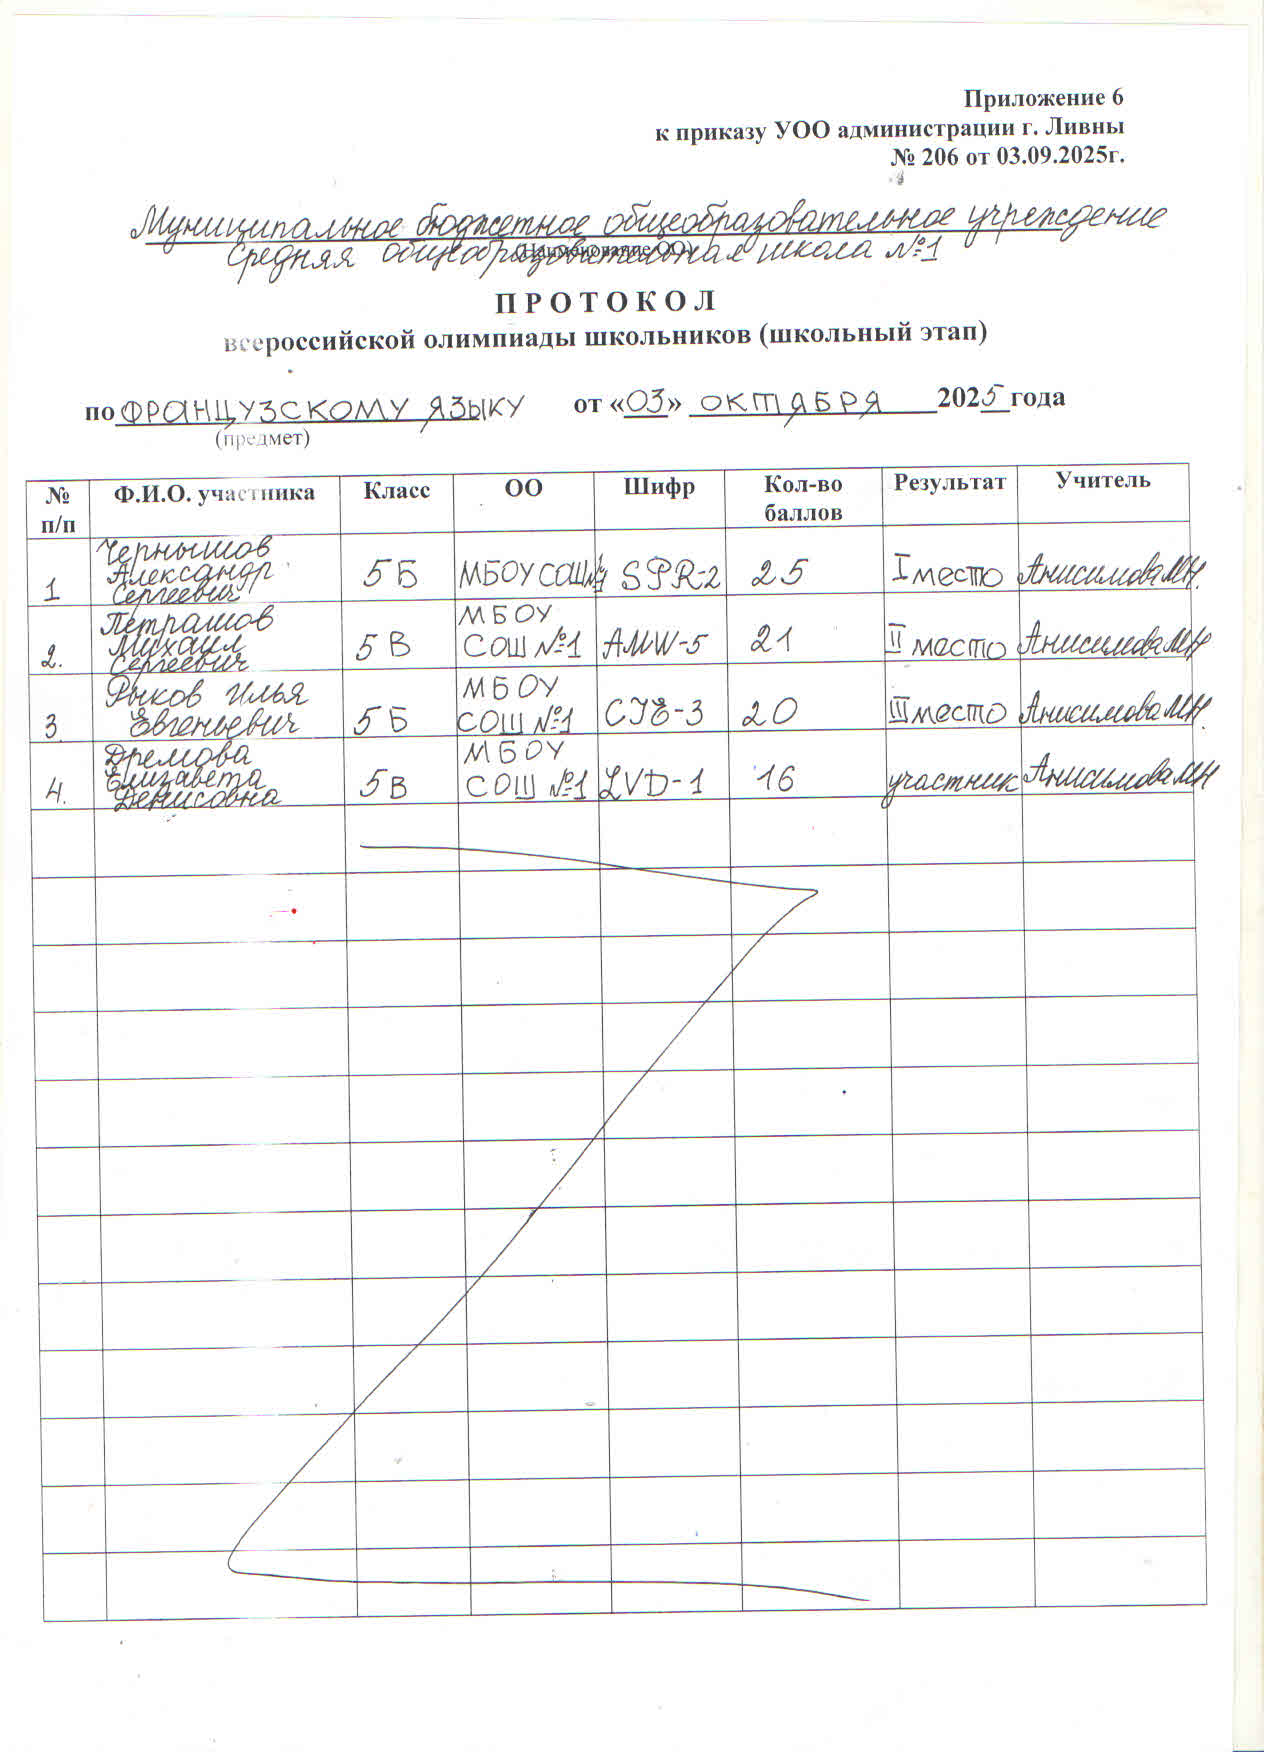 Приложение 6
к приказу УОО администрации г. Ливны
№ 206 от 03.09.2025г.
Муниципальное бюджетное общеобразовательное учреждение
(Наименование ОО)
средняя общеобразовательная школа №1
ПРОТОКОЛ
всероссийской олимпиады школьников (школьный этап)
по французскому языку от «03» октября 2025 года
(предмет)
№ п/п Ф.И.О. участника Класс ОО Шифр Кол-во баллов Результат Учитель
1 Чернышов Александр Сергеевич 5Б МБОУ СОШ №1 SPR-2 25 I место Анисимова М.Н.
2. Петрашов Михаил Сергеевич 5В МБОУ СОШ №1 AMW-5 21 II место Анисимова М.Н
3 Рыков Илья Евгеньевич 5Б МБОУ СОШ №1 20 III место Анисимова М.Н.
4. Дремова Елизавета Денисовна 5В МБОУ СОШ №1 LVD-1 16 участник Анисимова М.Н